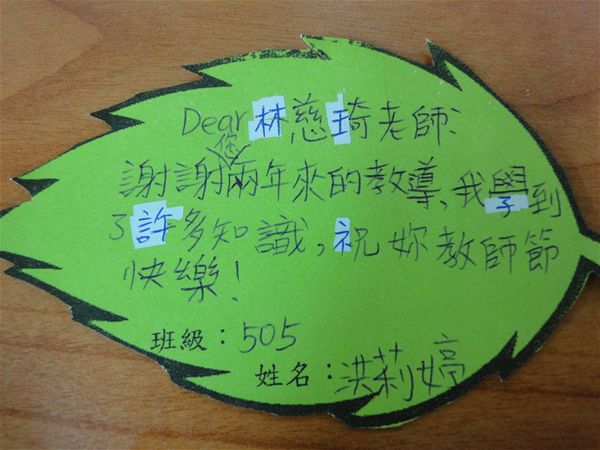 Dear 林慈琦老師:
謝謝您兩年來的教導、我學到
了許多知識，祝妳教師節
快樂！
班級：505
姓名：洪莉婷